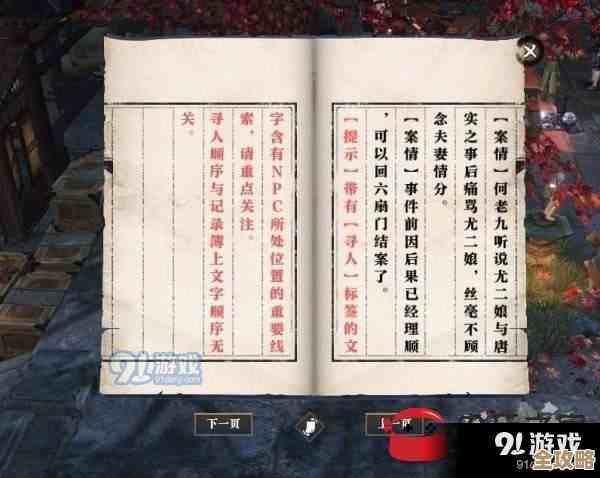 【案情】何老九听说尤二娘与唐
实之事后痛骂尤二娘，丝毫不顾
念夫妻情分。
【案情】事件前因后果已经理顺
，可以回六扇门结案了。
【提示】带有【寻人】标签的文
字含有NPC所处位置的重要线
索，请重点关注。
寻人顺序与记录簿上文字顺序无
关。
91游戏
91danji.com
下一页
上一页
91游戏
全攻略